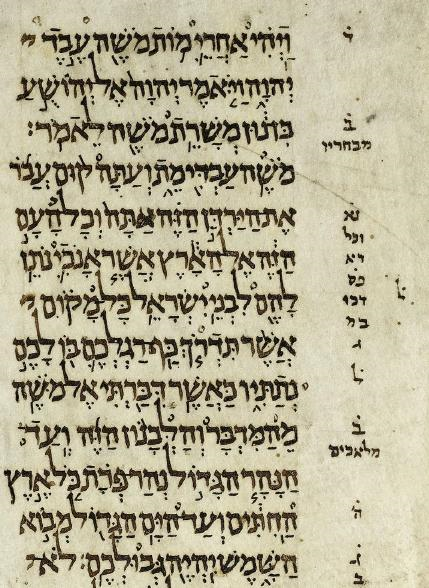 וַיְהִי אַחֲרֵי מוֹת מֹשֶׁה עֶבֶד
יְהוָה וַיֹּאמֶר יְהוָה אֶל יְהוֹשֻׁעַ
בִּן נוּן מְשָׁרֵת מֹשֶׁה לֵאמֹר׃
מֹשֶׁה עַבְדִּי מֵת וְעַתָּה קוּם עֲבֹר
אֶת הַיַּרְדֵּן הַזֶּה אַתָּה וְכָל הָעָם
הַזֶּה אֶל הָאָרֶץ אֲשֶׁר אָנֹכִי נֹתֵן
לָהֶם לִבְנֵי יִשְׂרָאֵל׃ כָּל מָקוֹם
אֲשֶׁר תִּדְרֹךְ כַּף רַגְלְכֶם בּוֹ לָכֶם
נְתַתִּיו כַּאֲשֶׁר דִּבַּרְתִּי אֶל מֹשֶׁה׃
מֵהַמִּדְבָּר וְהַלְּבָנוֹן הַזֶּה וְעַד
הַנָּהָר הַגָּדוֹל נְהַר פְּרָת כֹּל אֶרֶץ
הַחִתִּים וְעַד הַיָּם הַגָּדוֹל מְבוֹא
הַשָּׁמֶשׁ יִהְיֶה גְּבוּלְכֶם׃ לֹא
ב
וכל
ב